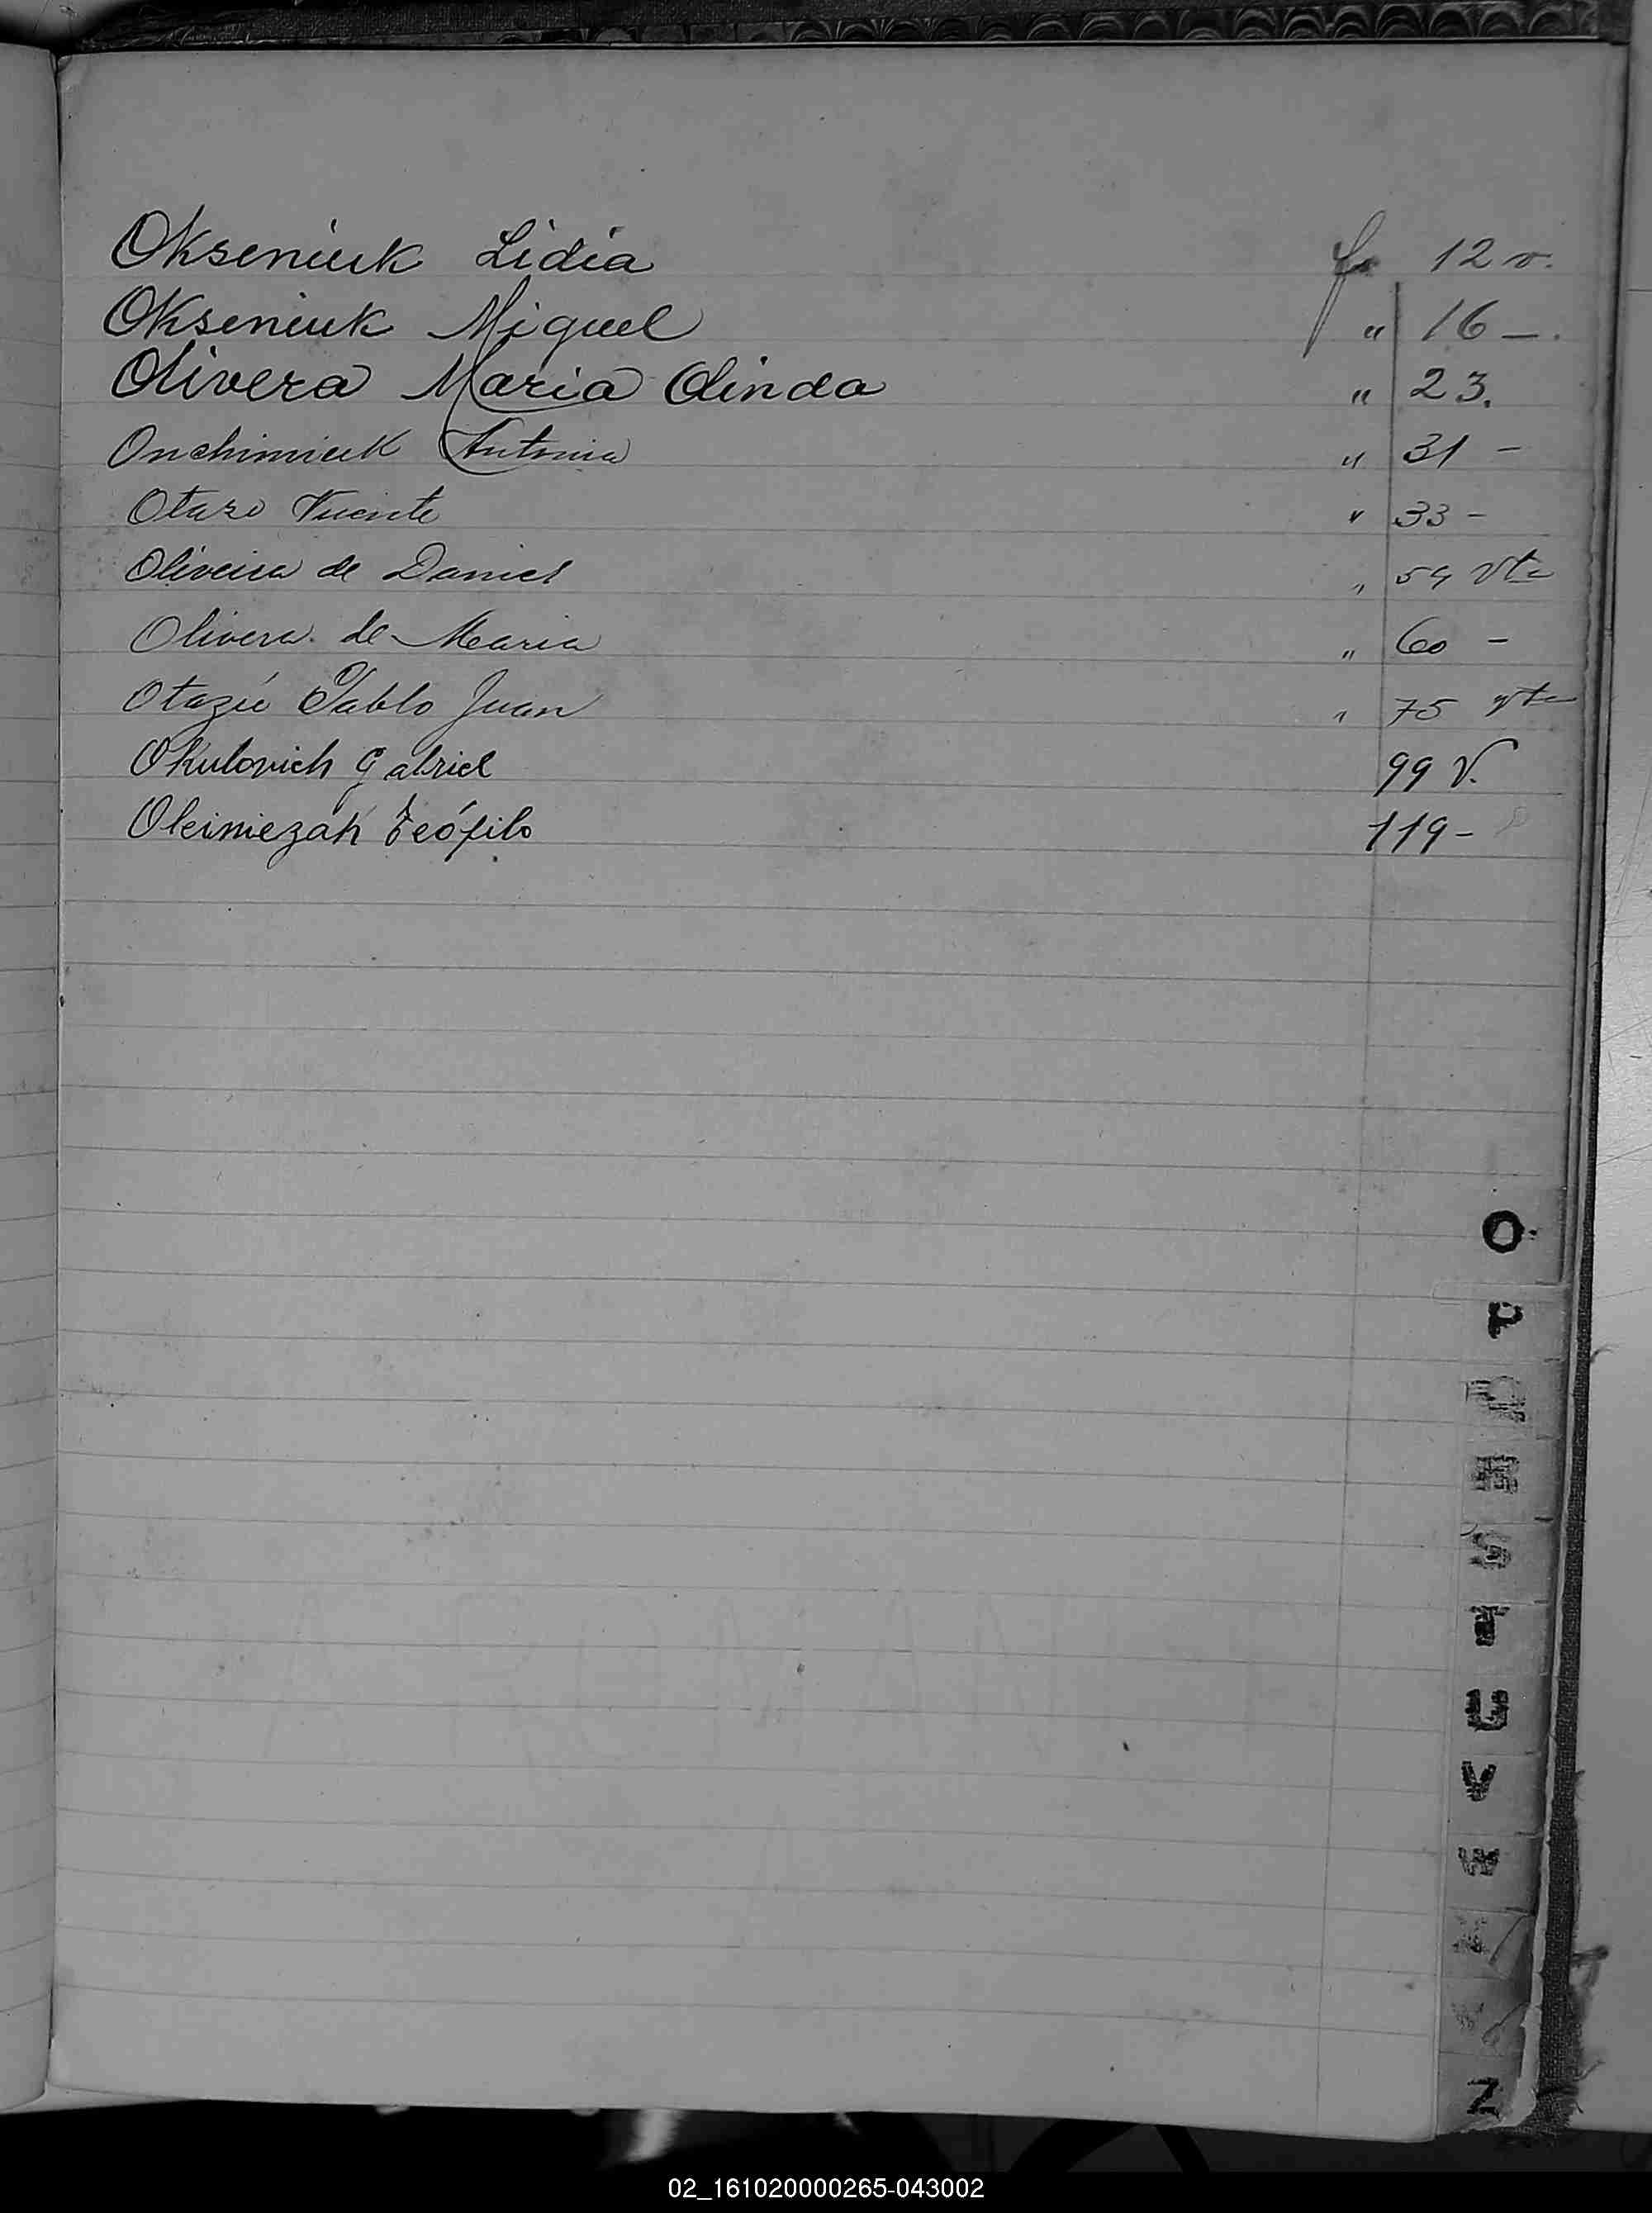 Okseniuk Lidia fs 12 v.
Okseniuk Miguel " 16 –.
Olivera Maria Olinda " 23.
Onchimiuk Antonia " 31 –
Otazo Vicente " 33 –
Oliveira de Daniel " 54 vta
Olivera de Maria " 60 –
Otazú Pablo Juan " 75 vta
Okulovich Gabriel 99 V.
Oleiniezak Teófilo 119 –
O
P
Q
R
S
T
U
V
W
X
Z
02_161020000265-043002